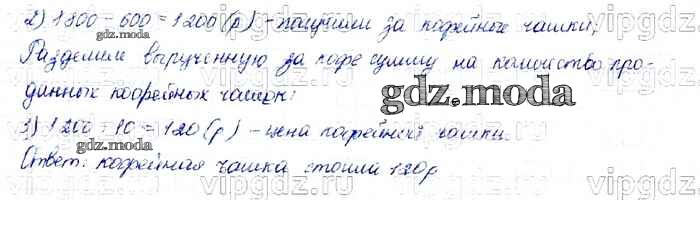 2) 1800 - 600 = 1200 (р) - получили за кофейные чашки;
Разделим вырученную за кофе сумму на количество про-
данных кофейных чашек:
3) 1200 : 10 = 120 (р) - цена кофейной чашки.
Ответ: кофейная чашка стоит 120р
gdz.moda
gdz.moda
gdz.moda
gdz.moda
gdz.moda
vipgdz.ru
vipgdz.ru
vipgdz.ru